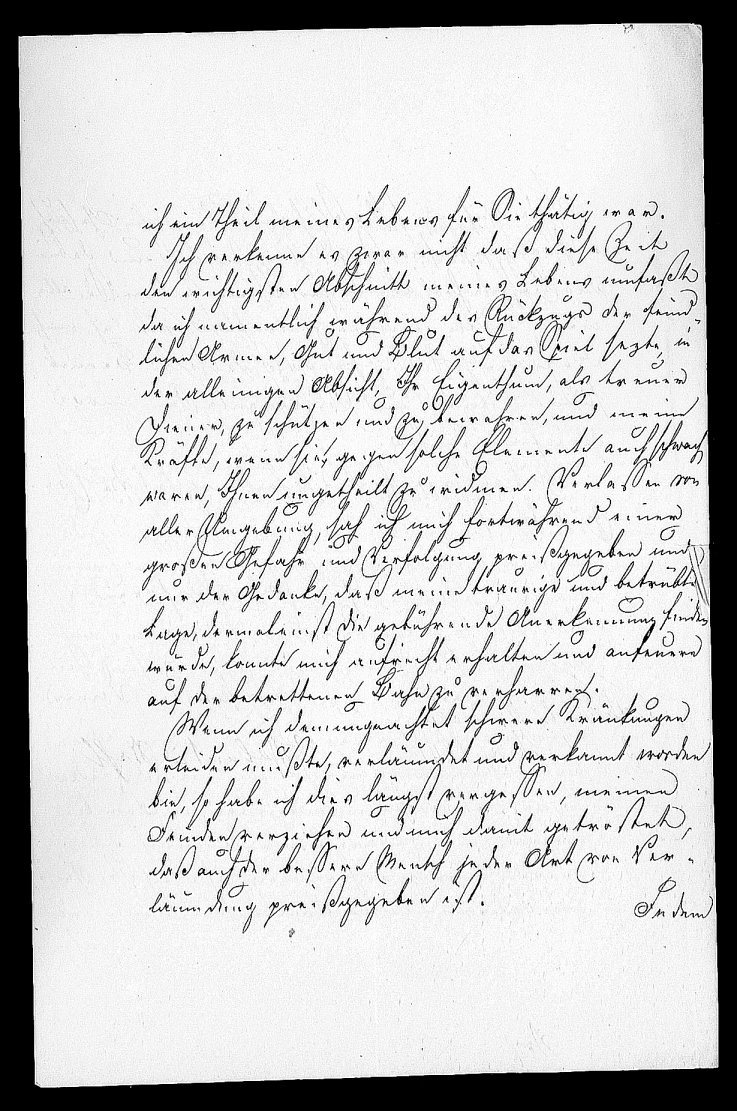 ich ein Theil meines Lebens für Sie thätig war.
Ich verkenne es zwar nicht daß diese Zeit
den wichtigsten Abschnitt meines Lebens umfaßte
da ich namentlich während des Rückzugs der feind-
lichen Armee, Gut und Blut auf das Spiel sezte, in
der alleinigen Absicht, Ihr Eigenthum, als treuer
Diener, zu schützen und zu bewahren, und meine
Kräfte, wenn sie, gegen solche Elemente auch schwach
waren, Ihnen ungetheilt zu widmen. Verlassen von
aller Umgebung, sah ich mich fortwährend einer
großen Gefahr und Verfolgung preißgegeben und
nur der Gedanke, daß meine traurige und betrübte
Lage, dermaleinst die gebührende Anerkennung finden
würde, konnte mich aufrecht erhalten und anfeuern
auf der betrettenen Bahn zu verharren.
Wenn ich demungeachtet schwere Kränkungen
erleiden mußte, verläumdet und verkannt worden
bin, so habe ich dies längst vergessen, meinen
Feinden verziehen und mich damit getröstet,
daß auch der bessere Mensch jeder Art von Ver-
läumdung preißgegeben ist.
Indem